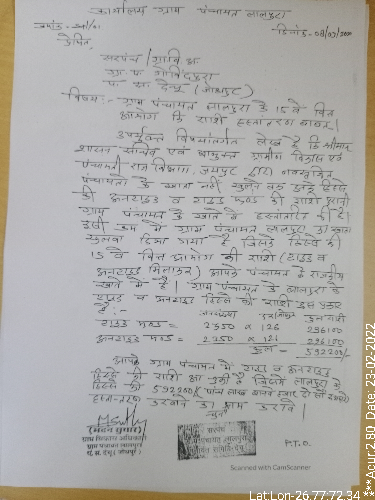 कार्यालय ग्राम पंचायत लालपुरा
दिनांक - 08/07/2020
प्रेषित,
सरपंच / ग्रा वि अ
ग्रा. प. गोविंदपुरा
प. स. देचू (जोधपुर)
विषय:- ग्राम पंचायत लालपुरा के 15 वे वित्त
आयोग कि राशि हस्तांतरण बाबत्।
उपर्युक्त विषयांतर्गत लेख है कि श्रीमान
शासन सचिव एवं आयुक्त ग्रामीण विकास एवं
पंचायती राज विभाग, जयपुर द्वारा नवसृजित
पंचायतो के खाता नहीं खुलने तक टाईड
की अनटाइड व टाइड फण्ड की राशि पुरानी
ग्राम पंचायत के खाते में हस्तांतरित की है।
इसी क्रम में ग्राम पंचायत लालपुरा का खाता
खुलवा दिया गया है जिसके हिस्से की
15 वे वित्त आयोग की राशि (टाइड व
अनटाइड मिलाकर) आपके पंचायत के
खाते में है। ग्राम पंचायत के लालपुरा के
टाइड व अनटाइड हिस्से की राशि इस प्रकार
है:-
टाइड फण्ड = 2350 x 126 296100
अनटाइड फण्ड = 2350 x 126 296100
कुल - 592200/-
आपके ग्राम पंचायत में टाइड व अनटाइड
हिस्से की राशि आ चुकी है जिसमें लालपुरा के
हिस्से की 592200/- पांच लाख बानवे हजार दो सौ रुपये
हस्तान्तरण करवाने का श्रम करावे।
(मदन सुथार)
ग्राम विकास अधिकारी
ग्राम पंचायत लालपुरा
पं. स. देचू (जोधपुर)
सरपंच
P.T.O.
Scanned with CamScanner
Lat,Lon-26.77,72.34
***Acur:2.80 Date: 23-02-2022